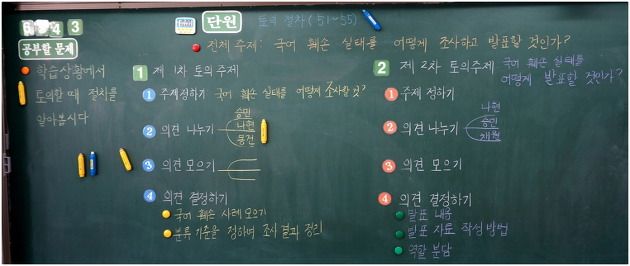 6 4 3
단원 토의 절차 (51~55)
공부할 문제
전체 주제: 국어 훼손 실태를 어떻게 조사하고 발표할 것인가?
학습 상황에서
토의할 때 절차를
알아봅시다
1 제 1차 토의주제
1 주제 정하기 국어 훼손 실태를 어떻게 조사할 것?
2 의견 나누기 승민
나현
동건
3 의견 모으기
4 의견 결정하기
국어 훼손 사례 모으기
분류 기준을 정하여 조사 결과 정리
2 제 2차 토의주제 국어 훼손 실태를
어떻게 발표할 것인가?
1 주제 정하기
2 의견 나누기 나현
승민
3 의견 모으기
4 의견 결정하기
발표 내용
발표 자료 작성 방법
역할 분담